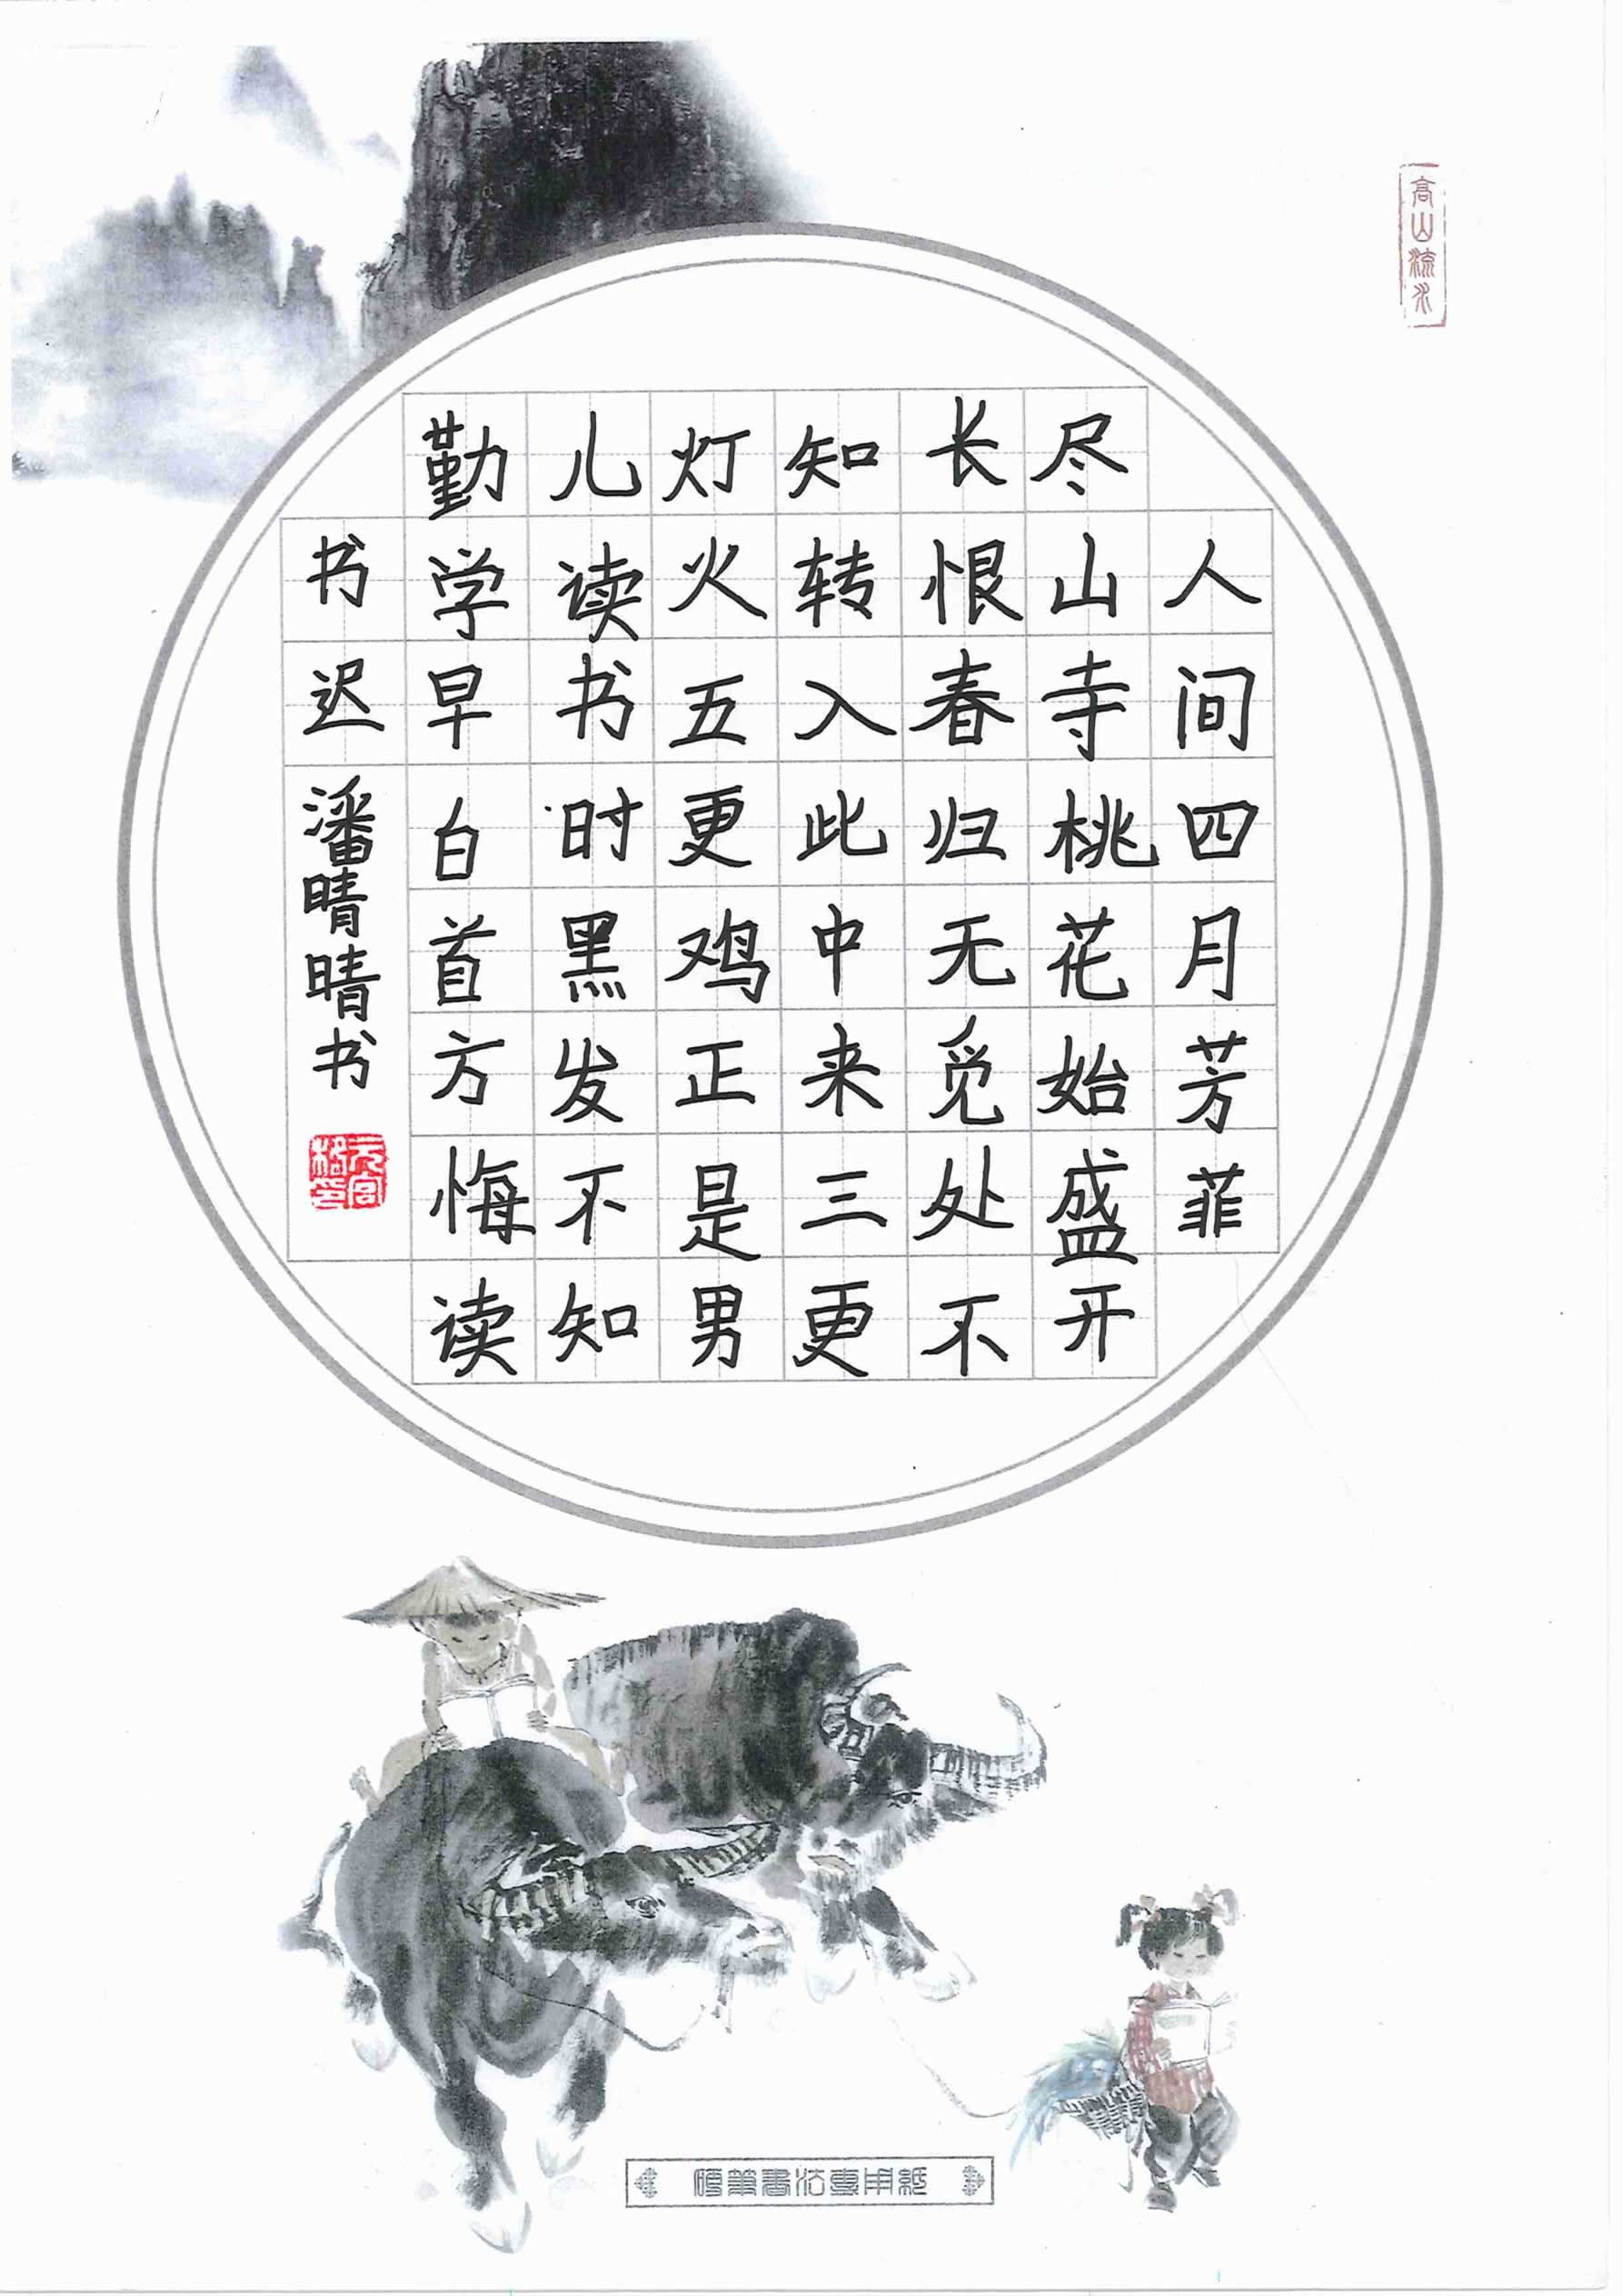 高山流水
人间四月芳菲
尽山寺桃花始盛开
长恨春归无觅处不
知转入此中来三更
灯火五更鸡正是男
儿读书时黑发不知
勤学早白首方悔读
书迟 潘晴晴书
硬筆書法專用紙